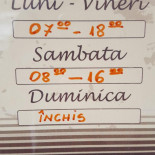 Luni - Vineri
07⁰⁰ - 18⁰⁰
Sambata
08⁰⁰ - 16⁰⁰
Duminica
ÎNCHIS